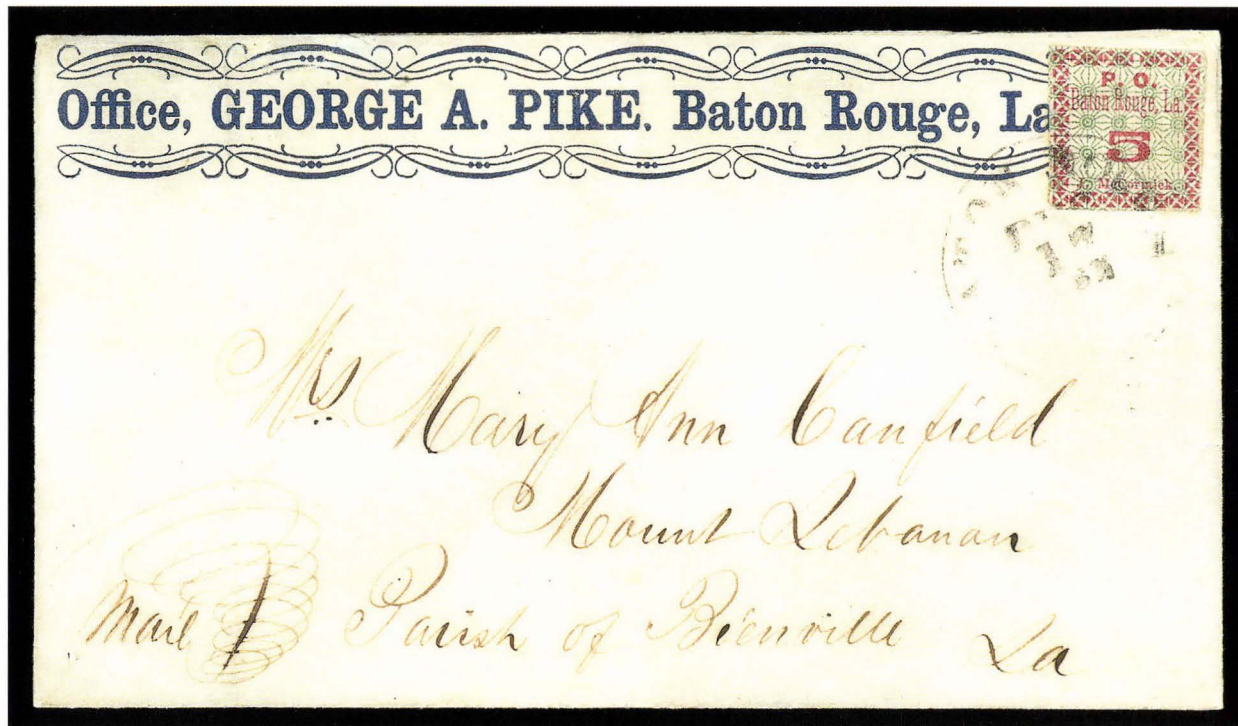 Office, GEORGE A. PIKE. Baton Rouge, La
P O
Baton Rouge, La.
5
McCormick.
Mrs Mary Ann Canfield
Mount Lebanon
Mail Parish of Bienville La